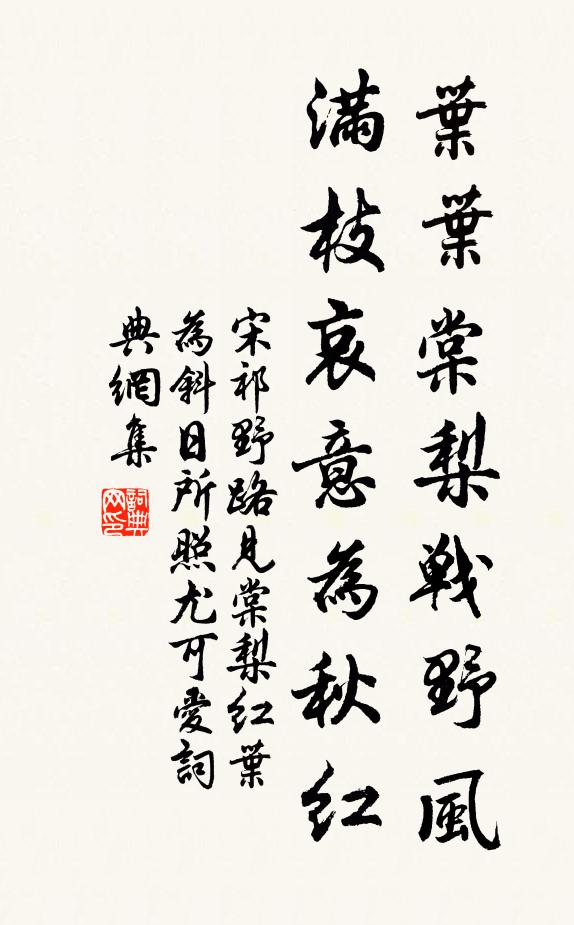 葉葉棠梨戰野風
滿枝哀意為秋紅
宋祁野路見棠梨紅葉
為斜日所照尤可愛詞
典網集
詞典网印